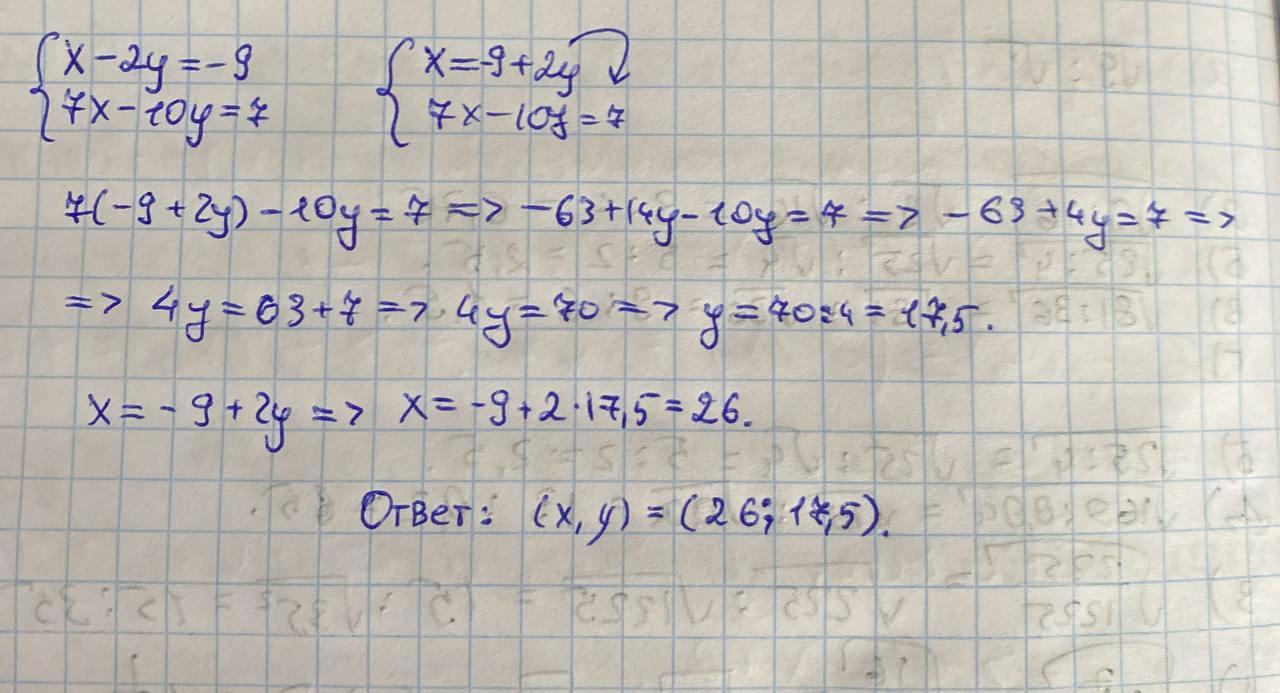 x-2y=-9 x=-9+2y
7x-10y=7 7x-10y=7
7(-9+2y)-10y=7 => -63+14y-10y=7 => -63+4y=7 =>
=> 4y=63+7 => 4y=70 => y=70:4=17,5.
x=-9+2y => x=-9+2·17,5=26.
Ответ: (x,y)=(26;17,5).